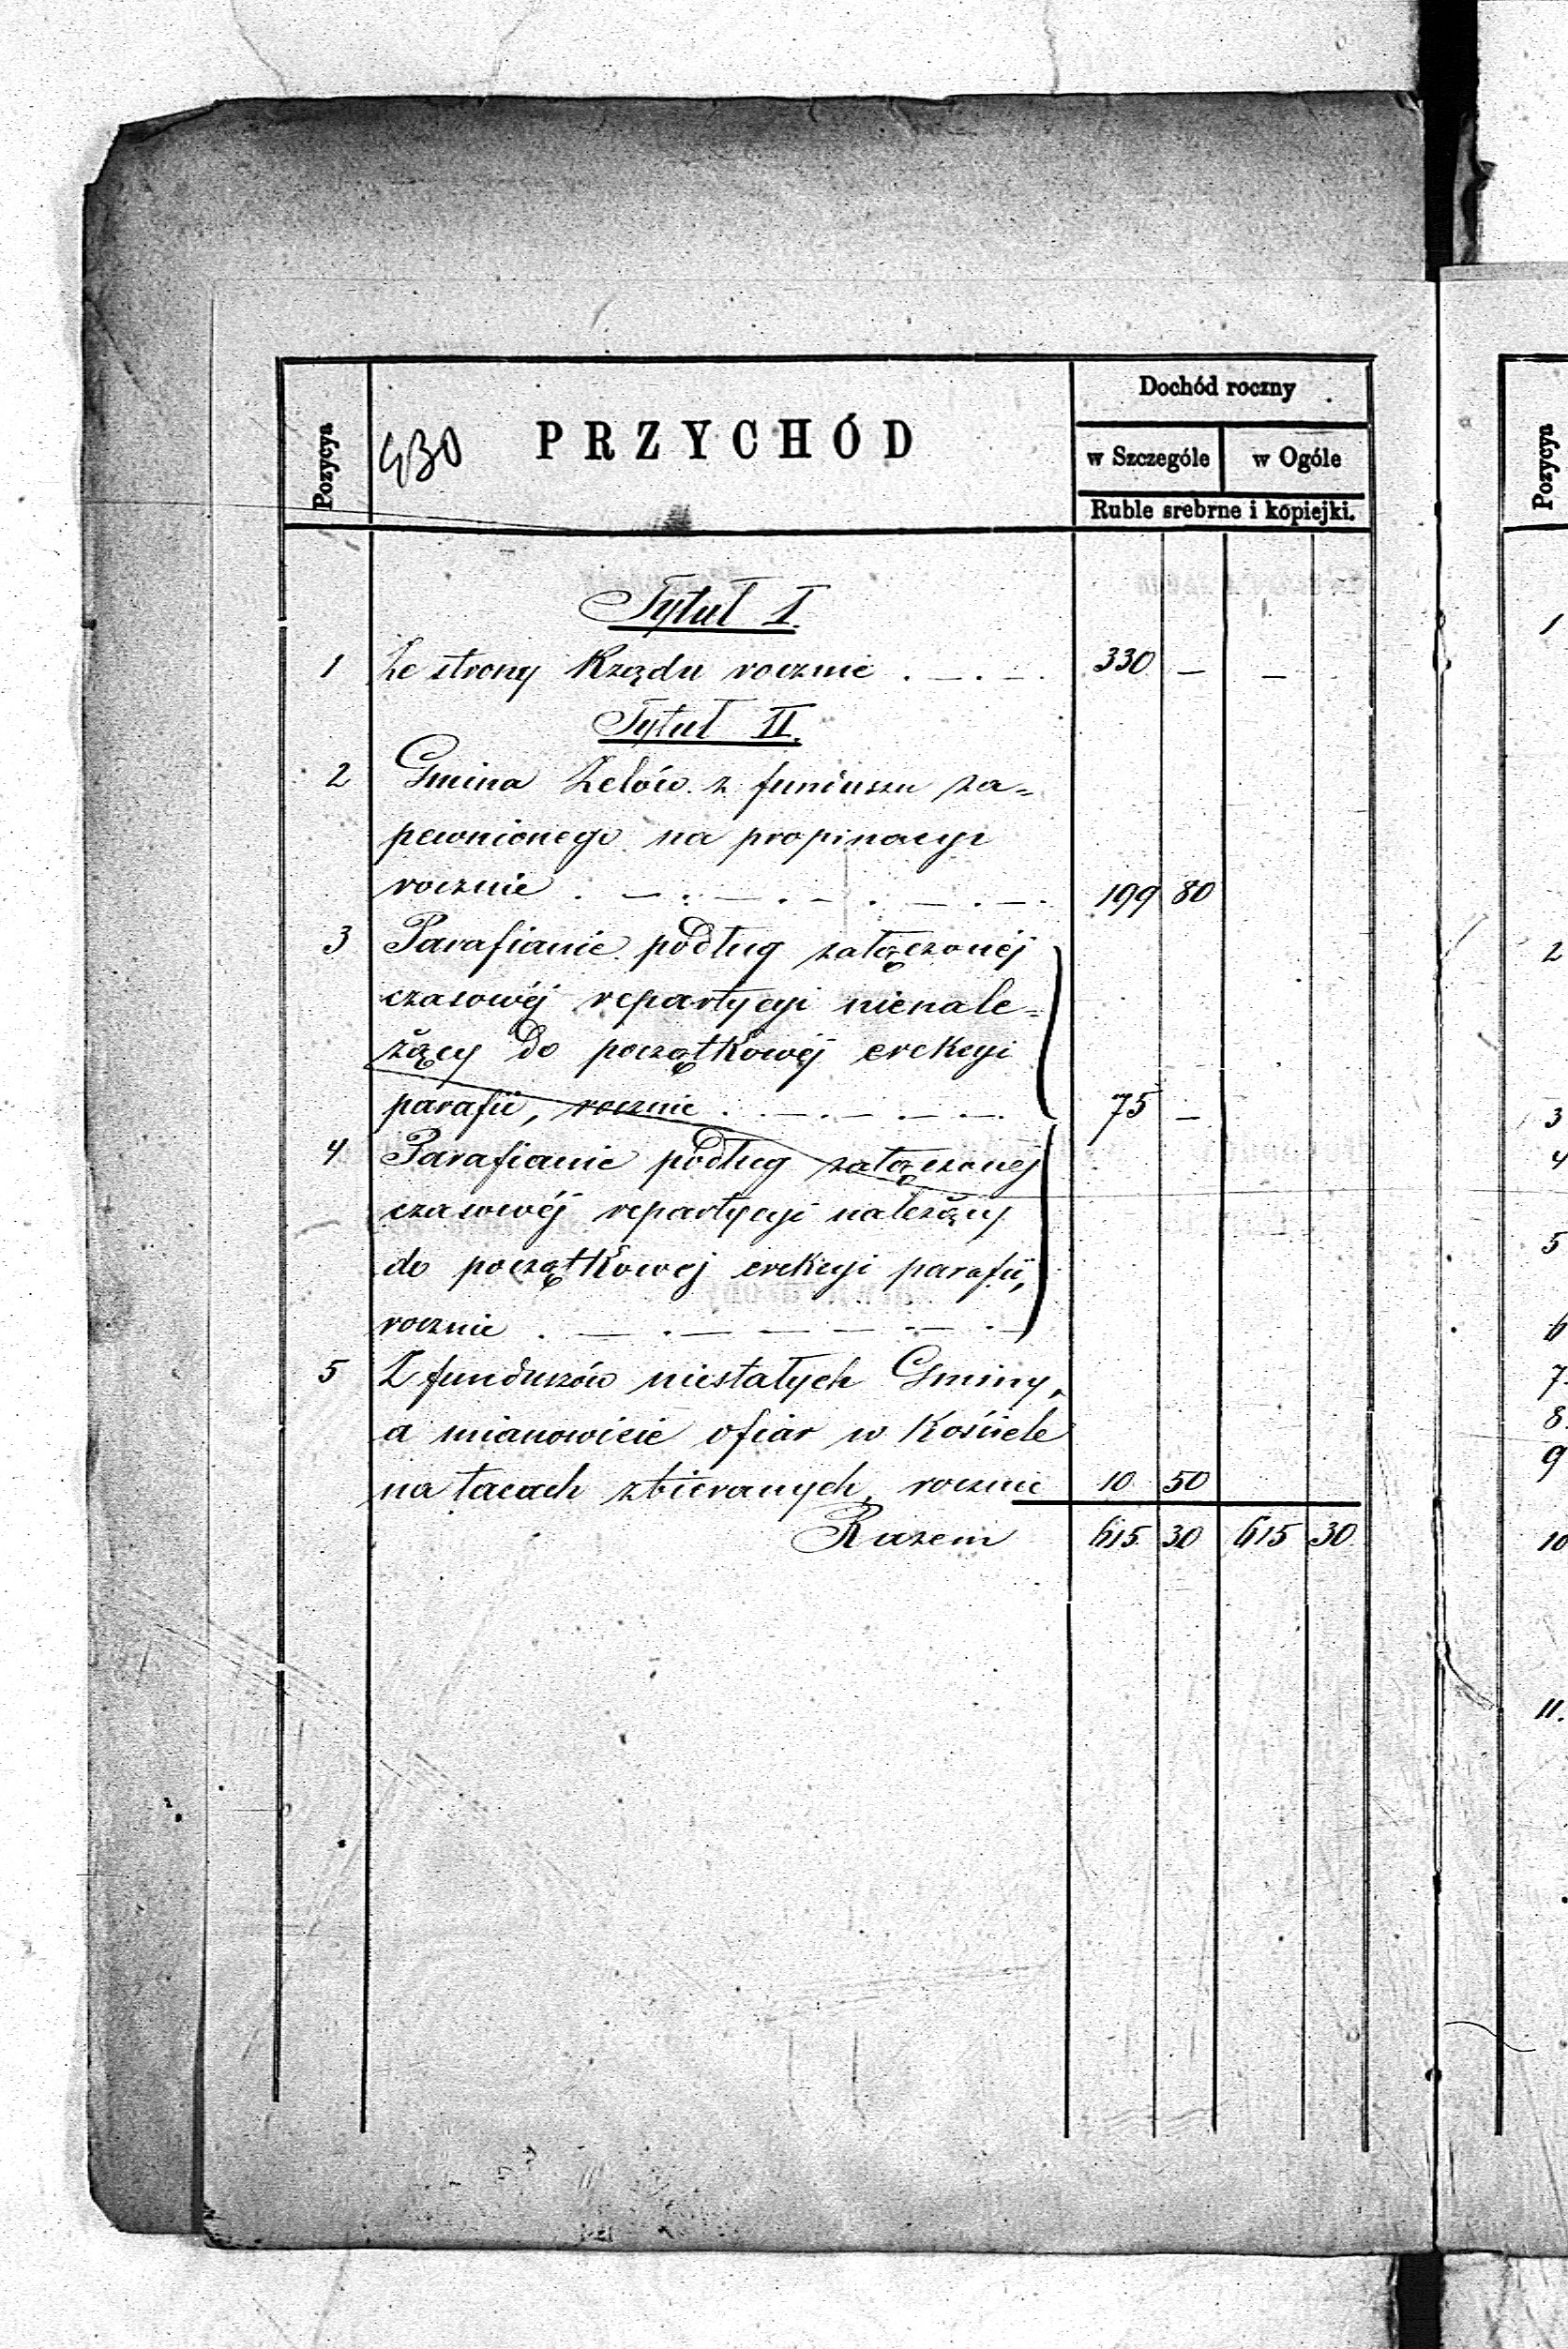 Dochód roczny
Pozycya 430 PRZYCHÓD w Szczególe w Ogóle
Ruble srebrne i kopiejki.
Tytuł I.
1 Ze strony Rządu rocznie . — . — . 330 — —
Tytuł II.
2 Gmina Zelów z funduszu za=
pewnionego na propinacyi
rocznie . — . — . — . — . — . 199 80
3 Parafianie podług załączonéj
czasowéj repartycyi nienale=
żący do początkowéj erekcyi
parafii, rocznie . — . — — — . 75 —
4 Parafianie podług załączonéj
czasowéj repartycyi należący
do początkowej erekcyi parafii,
rocznie . — . — — — . — . —
5 Z funduszów niestałych Gminy,
a mianowicie ofiar w Kościele
na tacach zbieranych, rocznie 10 50
Razem 615 30 615 30
Pozycya
1
2
3
4
5
6
7
8
9
10
11.